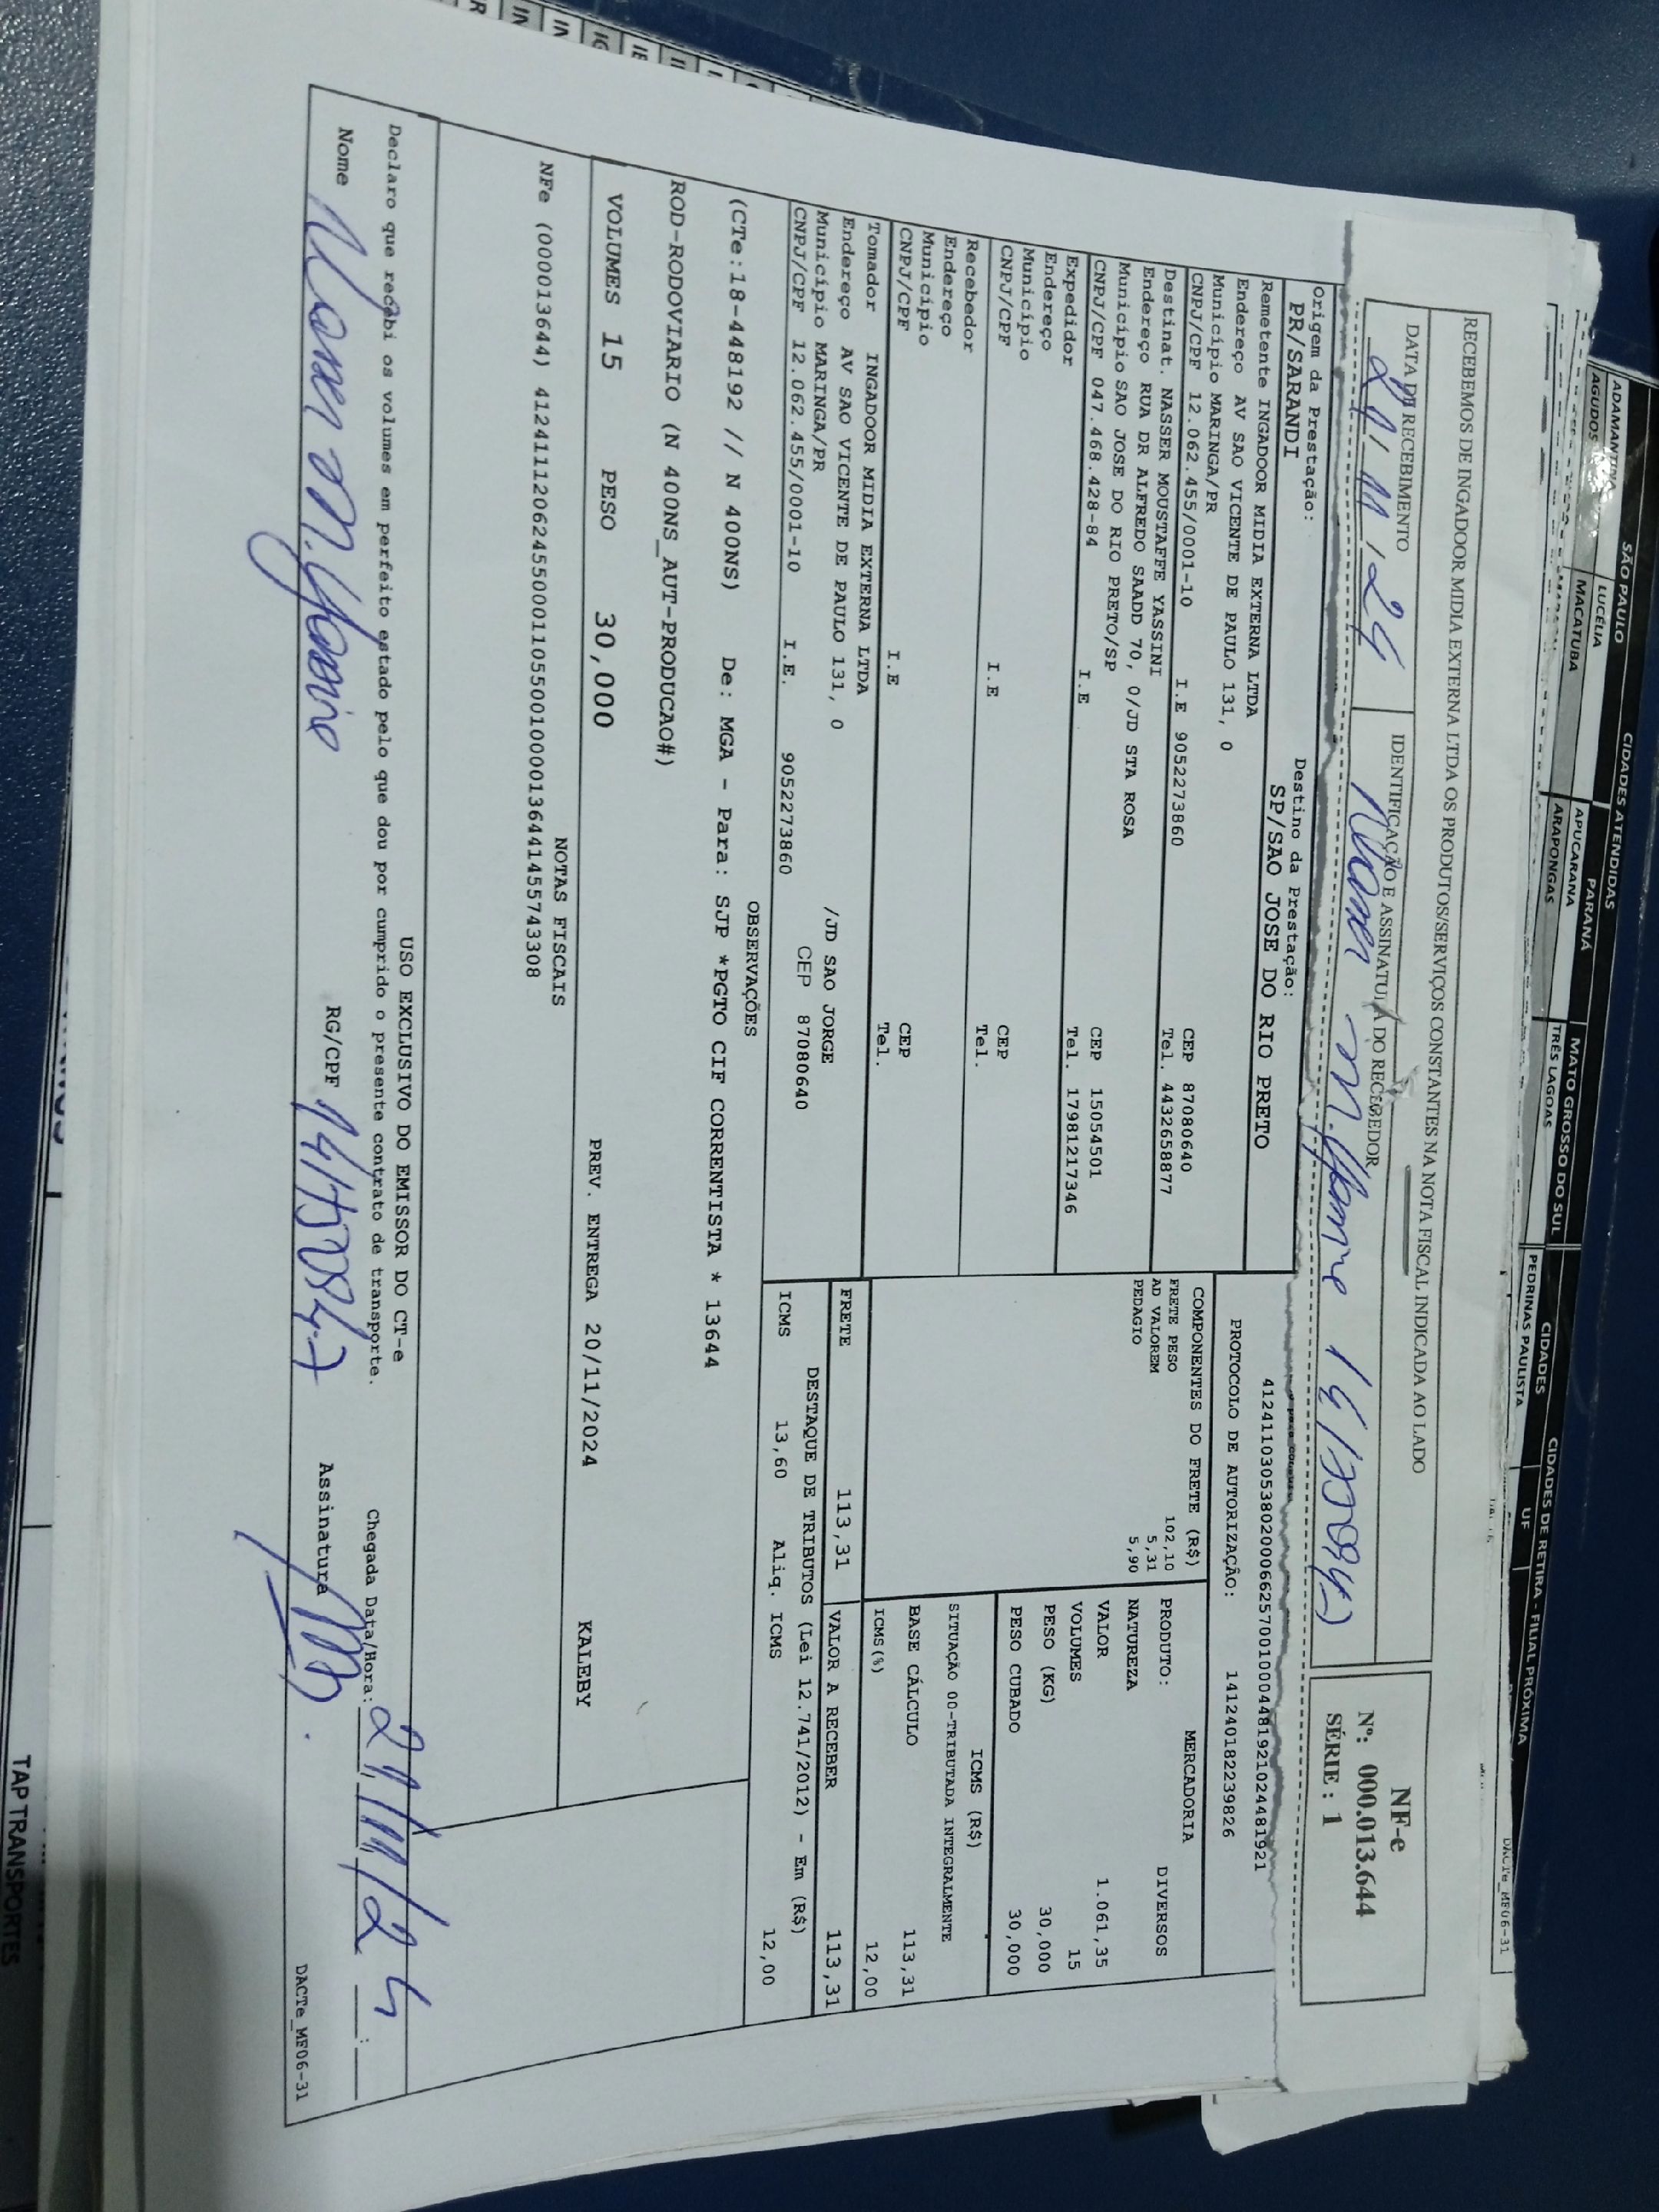 SÃO PAULO
CIDADES ATENDIDAS
CIDADES
CIDADES DE RETIRA - FILIAL PRÓXIMA
LUCÉLIA
PARANÁ
MATO GROSSO DO SUL
PEDRINAS PAULISTA
UF
MACATUBA
APUCARANA
ARAPONGAS
TRÊS LAGOAS
DACTe_MF06-31
RECEBEMOS DE INGADOOR MIDIA EXTERNA LTDA OS PRODUTOS/SERVIÇOS CONSTANTES NA NOTA FISCAL INDICADA AO LADO
DATA DE RECEBIMENTO
IDENTIFICAÇÃO E ASSINATURA DO RECEBEDOR
21/11/24
NF-e
Nº: 000.013.644
SÉRIE : 1
Origem da Prestação:
Destino da Prestação:
PR/SARANDI
SP/SAO JOSE DO RIO PRETO
PROTOCOLO DE AUTORIZAÇÃO: 141240182239826
Remetente INGADOOR MIDIA EXTERNA LTDA
Endereço AV SAO VICENTE DE PAULO 131, 0
Município MARINGA/PR
CEP 87080640
CNPJ/CPF 12.062.455/0001-10
I.E 9052273860
Tel. 4432658877
Destinat. NASSER MOUSTAFFE YASSINI
Endereço RUA DR ALFREDO SAADD 70, 0/JD STA ROSA
Município SAO JOSE DO RIO PRETO/SP
CEP 15054501
CNPJ/CPF 047.468.428-84
I.E
Tel. 17981217346
Expedidor
Endereço
Município
CEP
CNPJ/CPF
I.E
Tel.
Recebedor
Endereço
Município
CEP
CNPJ/CPF
I.E
Tel.
Tomador INGADOOR MIDIA EXTERNA LTDA
Endereço AV SAO VICENTE DE PAULO 131, 0
/JD SAO JORGE
Município MARINGA/PR
CEP 87080640
CNPJ/CPF 12.062.455/0001-10
I.E. 9052273860
COMPONENTES DO FRETE (R$)
FRETE PESO 102,10
AD VALOREM 5,31
PEDAGIO 5,90
MERCADORIA
PRODUTO: DIVERSOS
NATUREZA
VALOR 1.061,35
VOLUMES 15
PESO (KG) 30,000
PESO CUBADO 30,000
ICMS (R$)
SITUAÇÃO 00-TRIBUTADA INTEGRALMENTE
BASE CÁLCULO 113,31
ICMS(%) 12,00
FRETE 113,31
VALOR A RECEBER 113,31
DESTAQUE DE TRIBUTOS (Lei 12.741/2012) - Em (R$)
ICMS 13,60 Aliq. ICMS 12,00
OBSERVAÇÕES
(CTe:18-448192 // N 400NS) De: MGA - Para: SJP *PGTO CIF CORRENTISTA * 13644
ROD-RODOVIARIO (N 400NS_AUT-PRODUCAO#)
VOLUMES 15 PESO 30,000 PREV. ENTREGA 20/11/2024 KALEBY
NOTAS FISCAIS
NFe (000013644) 41241112062455000110550010000136441455743308
USO EXCLUSIVO DO EMISSOR DO CT-e
Declaro que recebi os volumes em perfeito estado pelo que dou por cumprido o presente contrato de transporte.
Chegada Data/Hora: 21/11/24
Nome
RG/CPF
Assinatura
DACTe_MF06-31
TAP TRANSPORTES